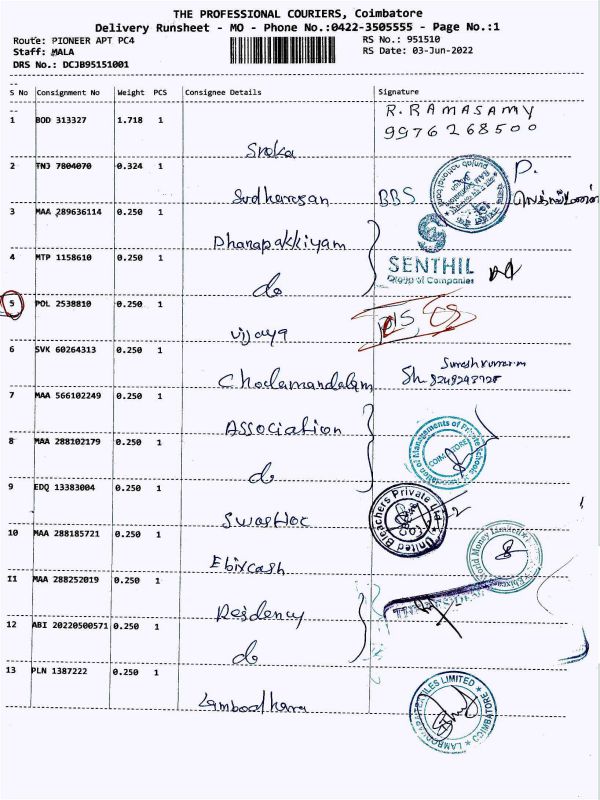 THE PROFESSIONAL COURIERS, Coimbatore
Delivery Runsheet - MO - Phone No.:0422-3505555 - Page No.:1
Route: PIONEER APT PC4 RS No.: 951510
Staff: MALA RS Date: 03-Jun-2022
DRS No.: DCJB95151001
S No Consignment No Weight PCS Consignee Details Signature
1 BOD 313327 1.718 1 R.RAMASAMY
9976268500
2 TNJ 7804070 0.324 1
Sudharesan BBS P.
3 MAA 289636114 0.250 1
Dhanapakkiyam
4 MTP 1158610 0.250 1 SENTHIL
Group of Companies
do
5 POL 2538810 0.250 1
Vijaya
6 SVK 60264313 0.250 1 Sureshkumar.m
Cholamandalam
7 MAA 566102249 0.250 1
Association
8 MAA 288102179 0.250 1 Association of Managements of Private Schools
COIMBATORE
do
9 EDQ 13383004 0.250 1 United Bleachers Private Ltd
10 MAA 288185721 0.250 1 Ebixcash World Money Limited
Ebixcash
11 MAA 288252019 0.250 1
Residency
12 ABI 20220500571 0.250 1
do
13 PLN 1387222 0.250 1
Lambodhara LAMBODHARA TEXTILES LIMITED COIMBATORE